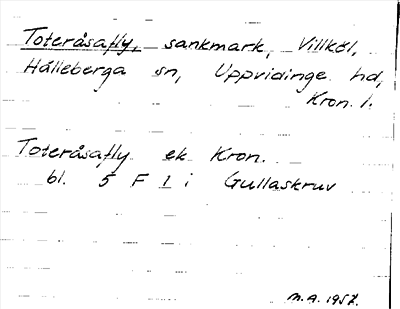 Toteråsafly, sankmark, Villköl,
Hälleberga sn, Uppvidinge hd,
Kron. l.
Toteråsafly ek Kron.
bl. 5 F 1 i Gullaskruv
M.A. 1957.